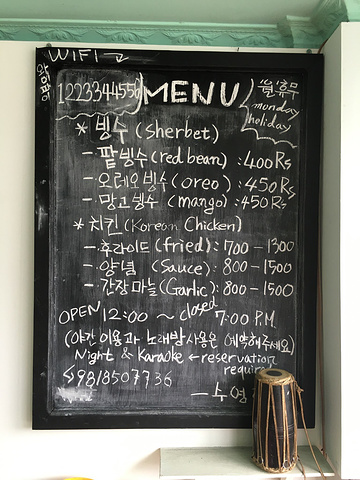 WIFI
1223344556
MENU
월휴무
monday
holiday
* 빙수 (sherbet)
- 팥빙수 (red bean) : 400 Rs
- 오레오빙수 (oreo) : 450 Rs
- 망고빙수 (mango) : 450 Rs
* 치킨 (Korean Chicken)
- 후라이드 (fried) : 700 - 1300
- 양념 (Sauce) : 800 - 1500
- 간장마늘 (Garlic) : 800 - 1500
OPEN 12:00 ~ closed 7:00 P.M.
(야간 이용과 노래방 사용은 예약해주세요)
Night & Karaoke ← reservation
require
9818507736